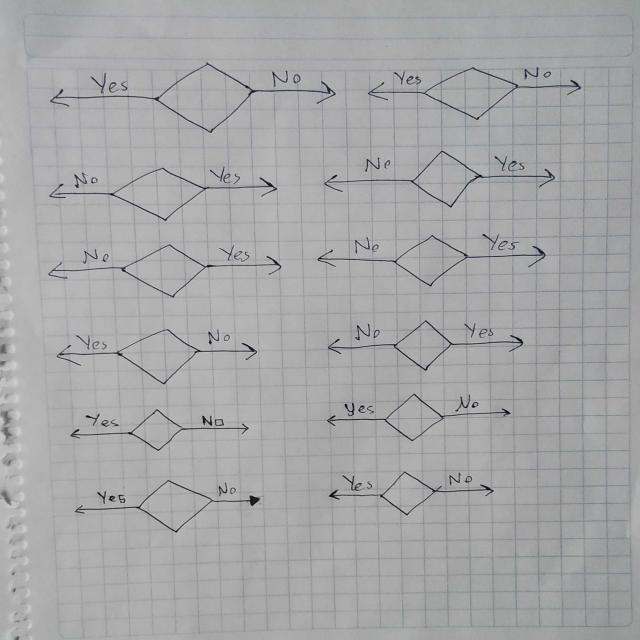 Yes No Yes No
No Yes No Yes
No Yes No Yes
Yes No No Yes
Yes No Yes No
Yes No Yes No